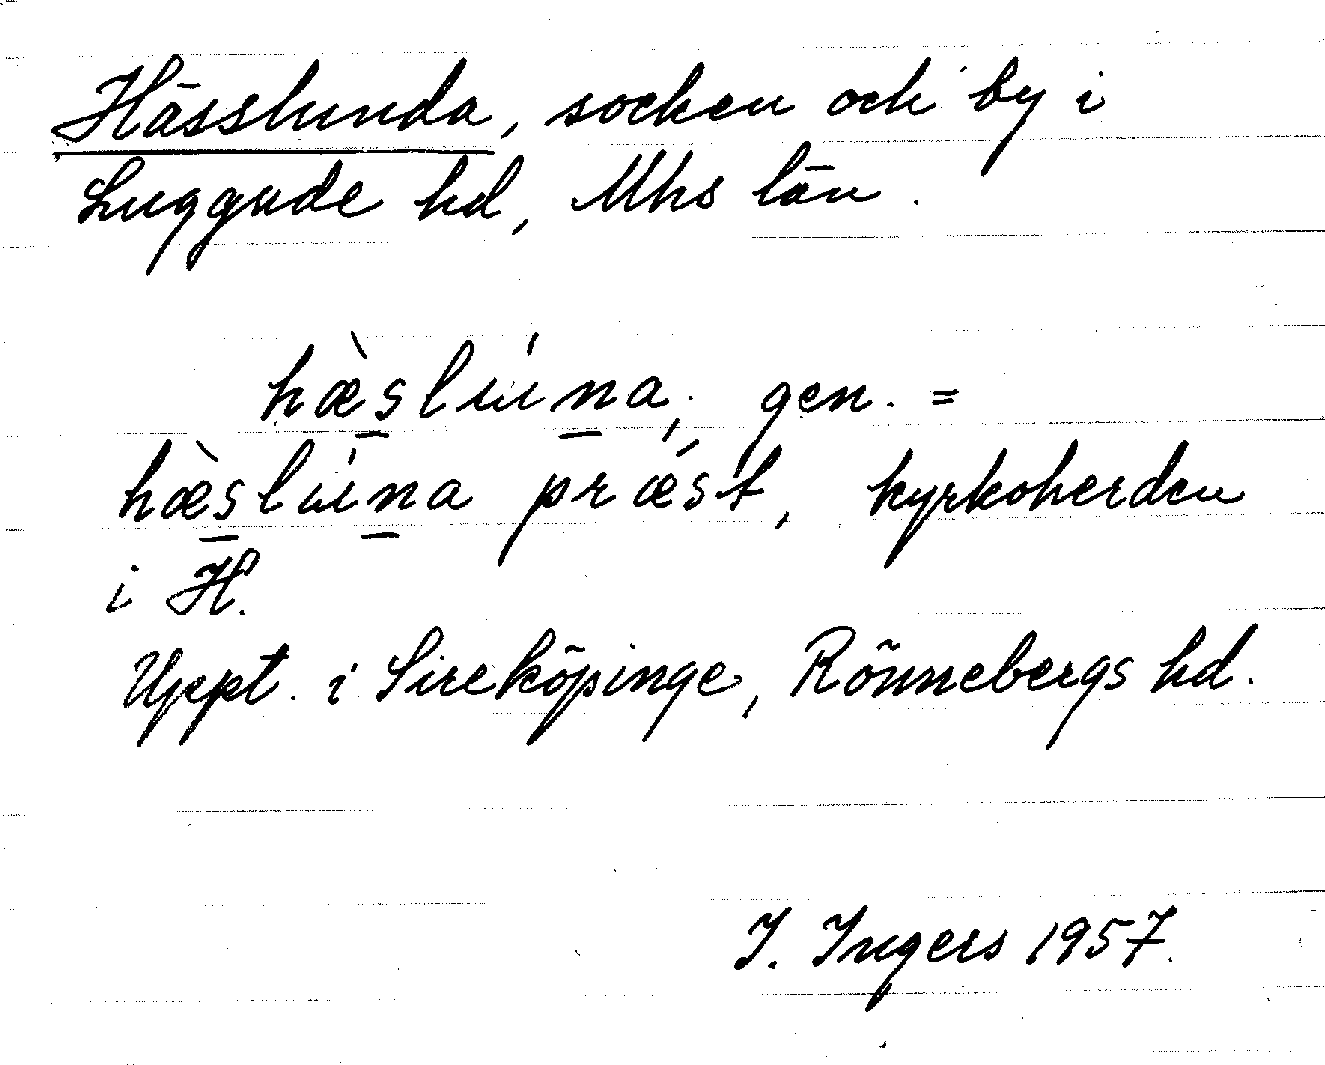 Hässlunda, socken och by i
Luggude hd, Mhs län.
hæ̀s̲lún̲a, gen. =
hæ̀s̲lún̲a prǽst, kyrkoherden
i H.
Uppt. i Sireköpinge, Rönnebergs hd.
I. Ingers 1957.